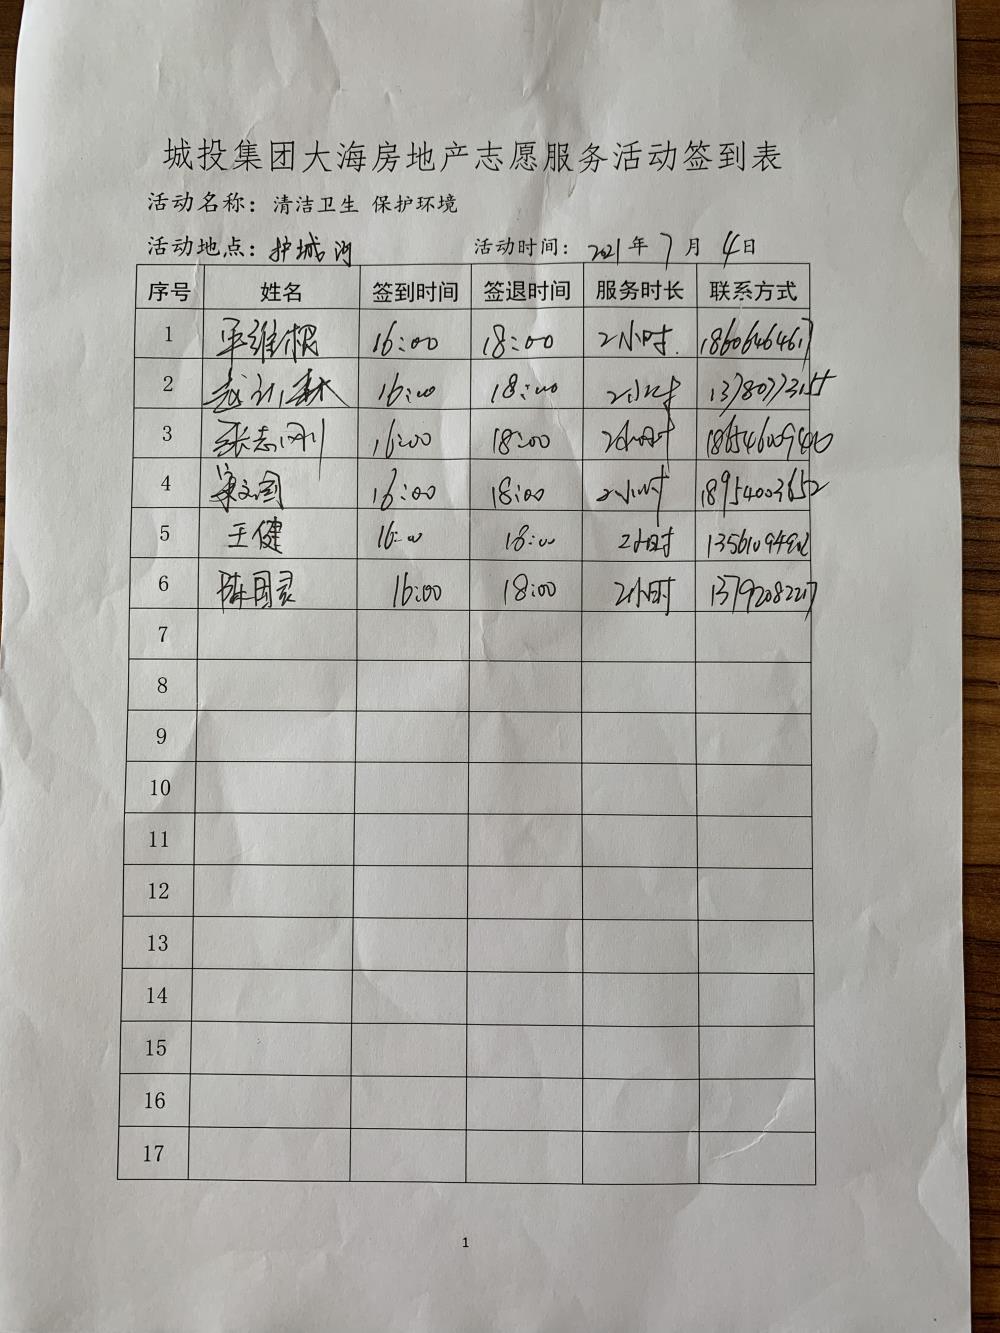 城投集团大海房地产志愿服务活动签到表
活动名称：清洁卫生 保护环境
活动地点：护城河 活动时间：2021年7月4日
序号 姓名 签到时间 签退时间 服务时长 联系方式
1 维根 16:00 18:00 2小时. 18606464617
2 16:00 18:00 2小时 13780773155
3 张志刚 16:00 18:00 2小时
4 文国 16:00 18:00 2小时 18954003652
5 王健 16:00 18:00 2小时
6 陈国灵 16:00 18:00 2小时 13792082217
7
8
9
10
11
12
13
14
15
16
17
1